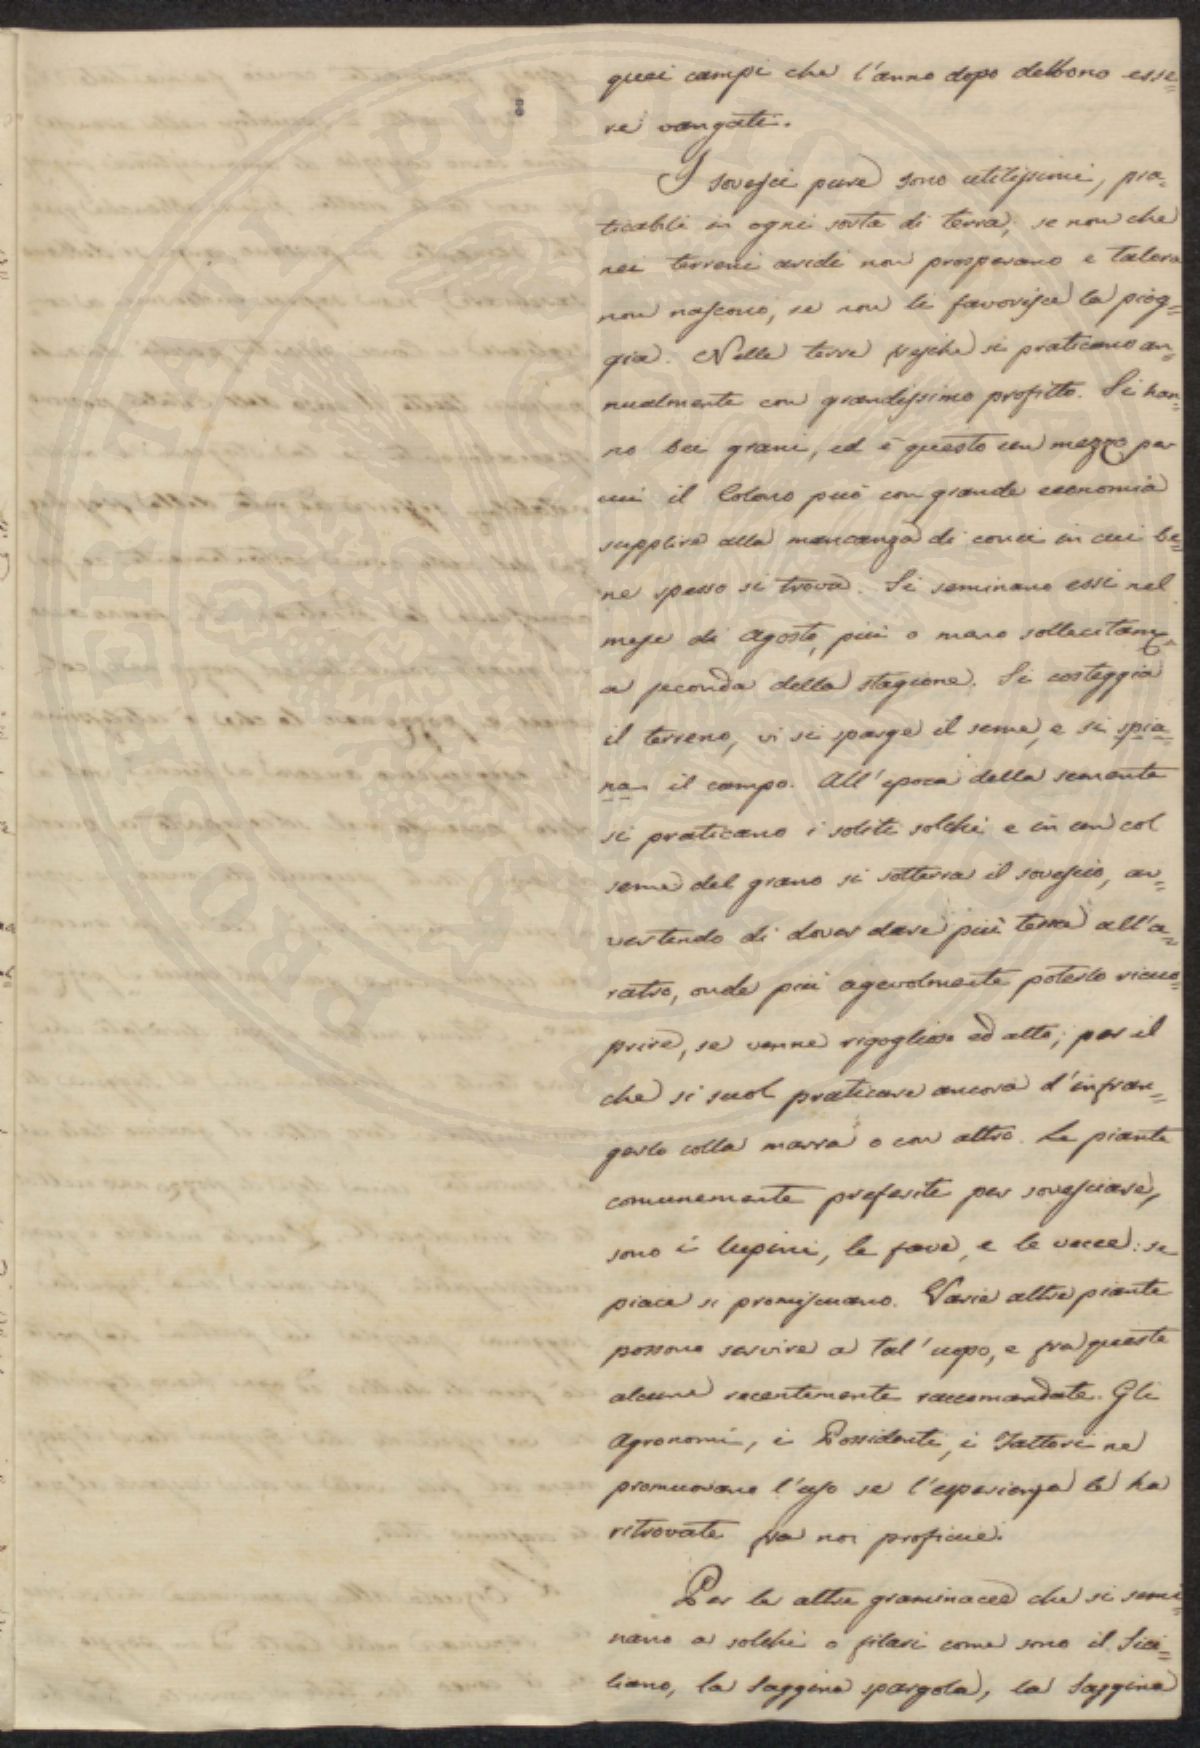 quei campi che l'anno dopo debbono esse=
re vangati.
I sovesci pure sono utilissimi, pra=
ticabili in ogni sorta di terra; se non che
nei terreni aridi non prosperano e talora
non nascono, se non li favorisce la piog=
gia. Nelle terre fresche si praticano an=
nualmente con grandissimo profitto. Si han=
no bei grani, ed è questo un mezzo per
cui il Colono può con grande economia
supplire alla mancanza di conci in cui be=
ne spesso si trova. Si seminano essi nel
mese di Agosto, più o meno sollecitam.
a seconda della stagione. Si costeggia
il terreno, vi si sparge il seme, e si spia=
na il campo. All'epoca della sementa
si praticano i soliti solchi e in un col
seme del grano si sotterra il sovescio, av=
vertendo di dover dare più terra all'a=
ratro, onde più agevolmente poterlo ricuo=
prire, se venne rigoglioso ed alto; per il
che si suol praticare ancora d'infran=
gerlo colla marra o con altro. Le piante
comunemente preferite per sovesciare,
sono i lupini, le fave, e le vecce: se
piace si promiscuano. Varie altre piante
possono servire a tal'uopo, e fra queste
alcune recentemente raccomandate. Gli
Agronomi, i Possidenti, i Fattori ne
promuovano l'uso se l'esperienza le ha
ritrovate fra noi proficue.
Per le altre graminacee che si semi=
nano a solchi o filari come sono il Sici=
liano, la Saggina spargola, la Saggina